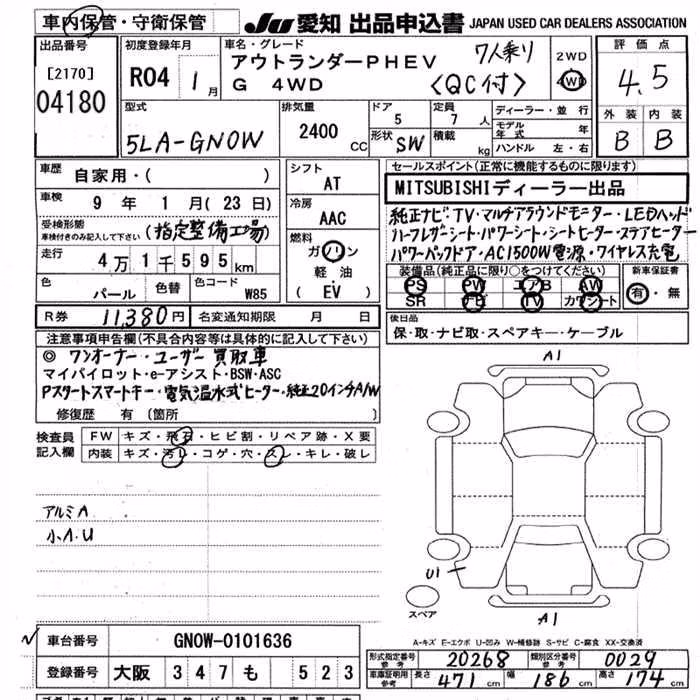 車内保管・守衛保管
JU 愛知 出品申込書 JAPAN USED CAR DEALERS ASSOCIATION
出品番号
[2170]
04180
初度登録年月
R04 1月
車名・グレード
アウトランダーPHEV
G 4WD
7人乗り
〈QC付〉
2WD
4WD
評価点
4.5
外装 内装
B B
型式
5LA-GN0W
排気量
2400 CC
ドア
5
形状 SW
定員
7人
積載 kg
ディーラー・並行
モデル年式 年
ハンドル 左・右
車歴
自家用・( )
車検
9年 1月(23日)
受検形態
車検付きのみ記入して下さい
(指定整備工場)
走行
4万1千595km
色
パール
色替
色コード
W85
シフト
AT
冷房
AAC
燃料
ガソリン
軽油
(EV)
セールスポイント(正常に機能するものに限ります)
MITSUBISHIディーラー出品
純正ナビTV・マルチアラウンドモニター・LEDヘッド
ハーフレザーシート・パワーシート・シートヒーター・ステアヒーター
パワーバックドア・AC1500W電源・ワイヤレス充電
装備品(純正品に限り○をつけてください)
PS PW エアB AW
SR ナビ TV カワシート
新車保証書
有・無
R券 11,380円 名変通知期限 月 日
後日品
保・取・ナビ取・スペアキー・ケーブル
注意事項申告欄(不具合内容等は具体的に記入して下さい)
◎ ワンオーナー・ユーザー買取車
マイパイロット・e-アシスト・BSW・ASC
Pスタートスマートキー・電気温水式ヒーター・純正20インチA/W
修復歴 有 (箇所 )
検査員記入欄
FW キズ・飛石・ヒビ割・リペア跡・X要
内装 キズ・汚レ・コゲ・穴・スレ・キレ・破レ
アルミA
小A.U
A1
U1
スペア
A1
A-キズ E-エクボ U-凹み W-補修跡 S-サビ C-腐食 XX-交換済
車台番号 GN0W-0101636
登録番号 大阪 347 も 523
形式指定番号 参考 20268 類別区分番号 参考 0029
車庫証明用 参考 長さ 471cm 幅 186cm 高さ 174cm